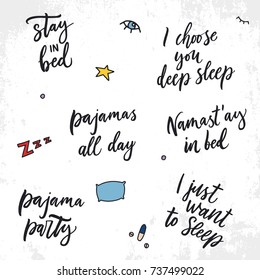 stay
in
bed
I choose
you
deep sleep
pajamas
all day
Namast'ay
in bed
zzz
pajama
party
I just
want
to sleep
shutterstock.com · 737499022